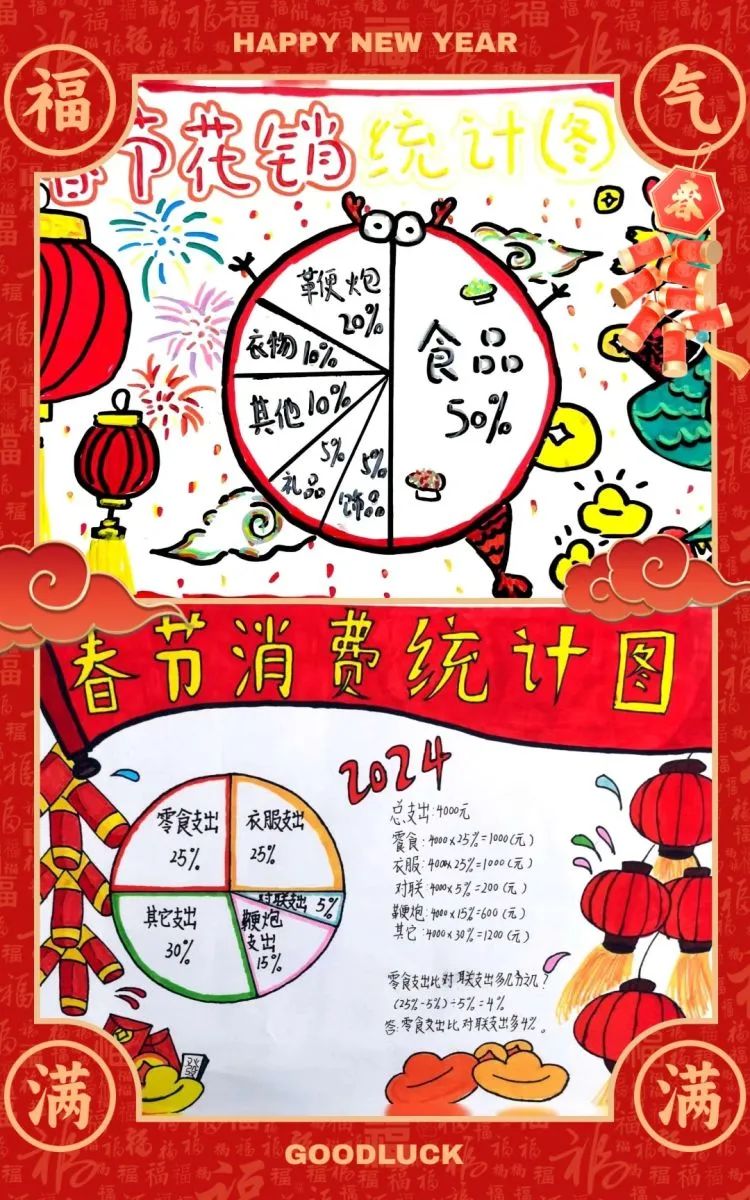 HAPPY NEW YEAR
福
气
春节花销统计图
春
鞭炮
20%
食品
50%
衣物10%
其他10%
5%
礼品
5%
饰品
春节消费统计图
2024
零食支出
25%
衣服支出
25%
对联支出 5%
鞭炮
支出
15%
其它支出
30%
总支出:4000元
零食:4000×25%=1000(元)
衣服:4000×25%=1000(元)
对联:4000×5%=200(元)
鞭炮:4000×15%=600(元)
其它:4000×30%=1200(元)
零食支出比对联支出多几分之几?
(25%-5%)÷5%=4%
答:零食支出比对联支出多4%。
發
满
满
GOODLUCK